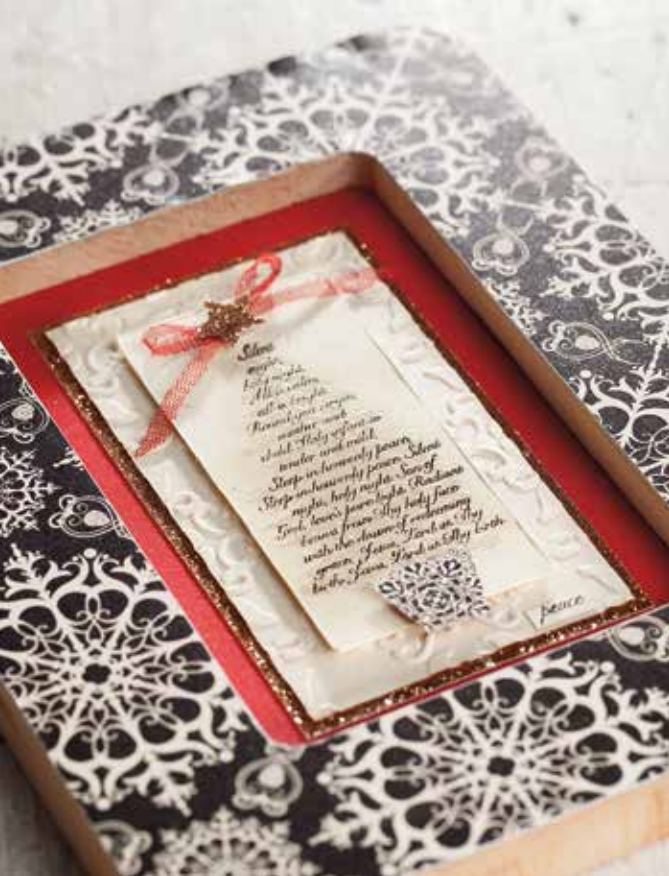 Silent
night,
holy night.
All is calm,
all is bright.
Round yon virgin
mother and
child. Holy infant so
tender and mild.
Sleep in heavenly peace,
Sleep in heavenly peace. Silent
night, holy night. Son of
God, love's pure light. Radiant
beams from Thy holy face
with the dawn of redeeming
grace, Jesus, Lord at Thy
birth. Jesus, Lord at Thy birth.
peace